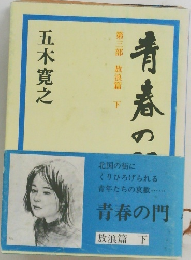 青春の門
第三部 放浪篇 下
五木寛之
北国の街に
くりひろげられる
青年たちの哀歓……
青春の門
放浪篇 下